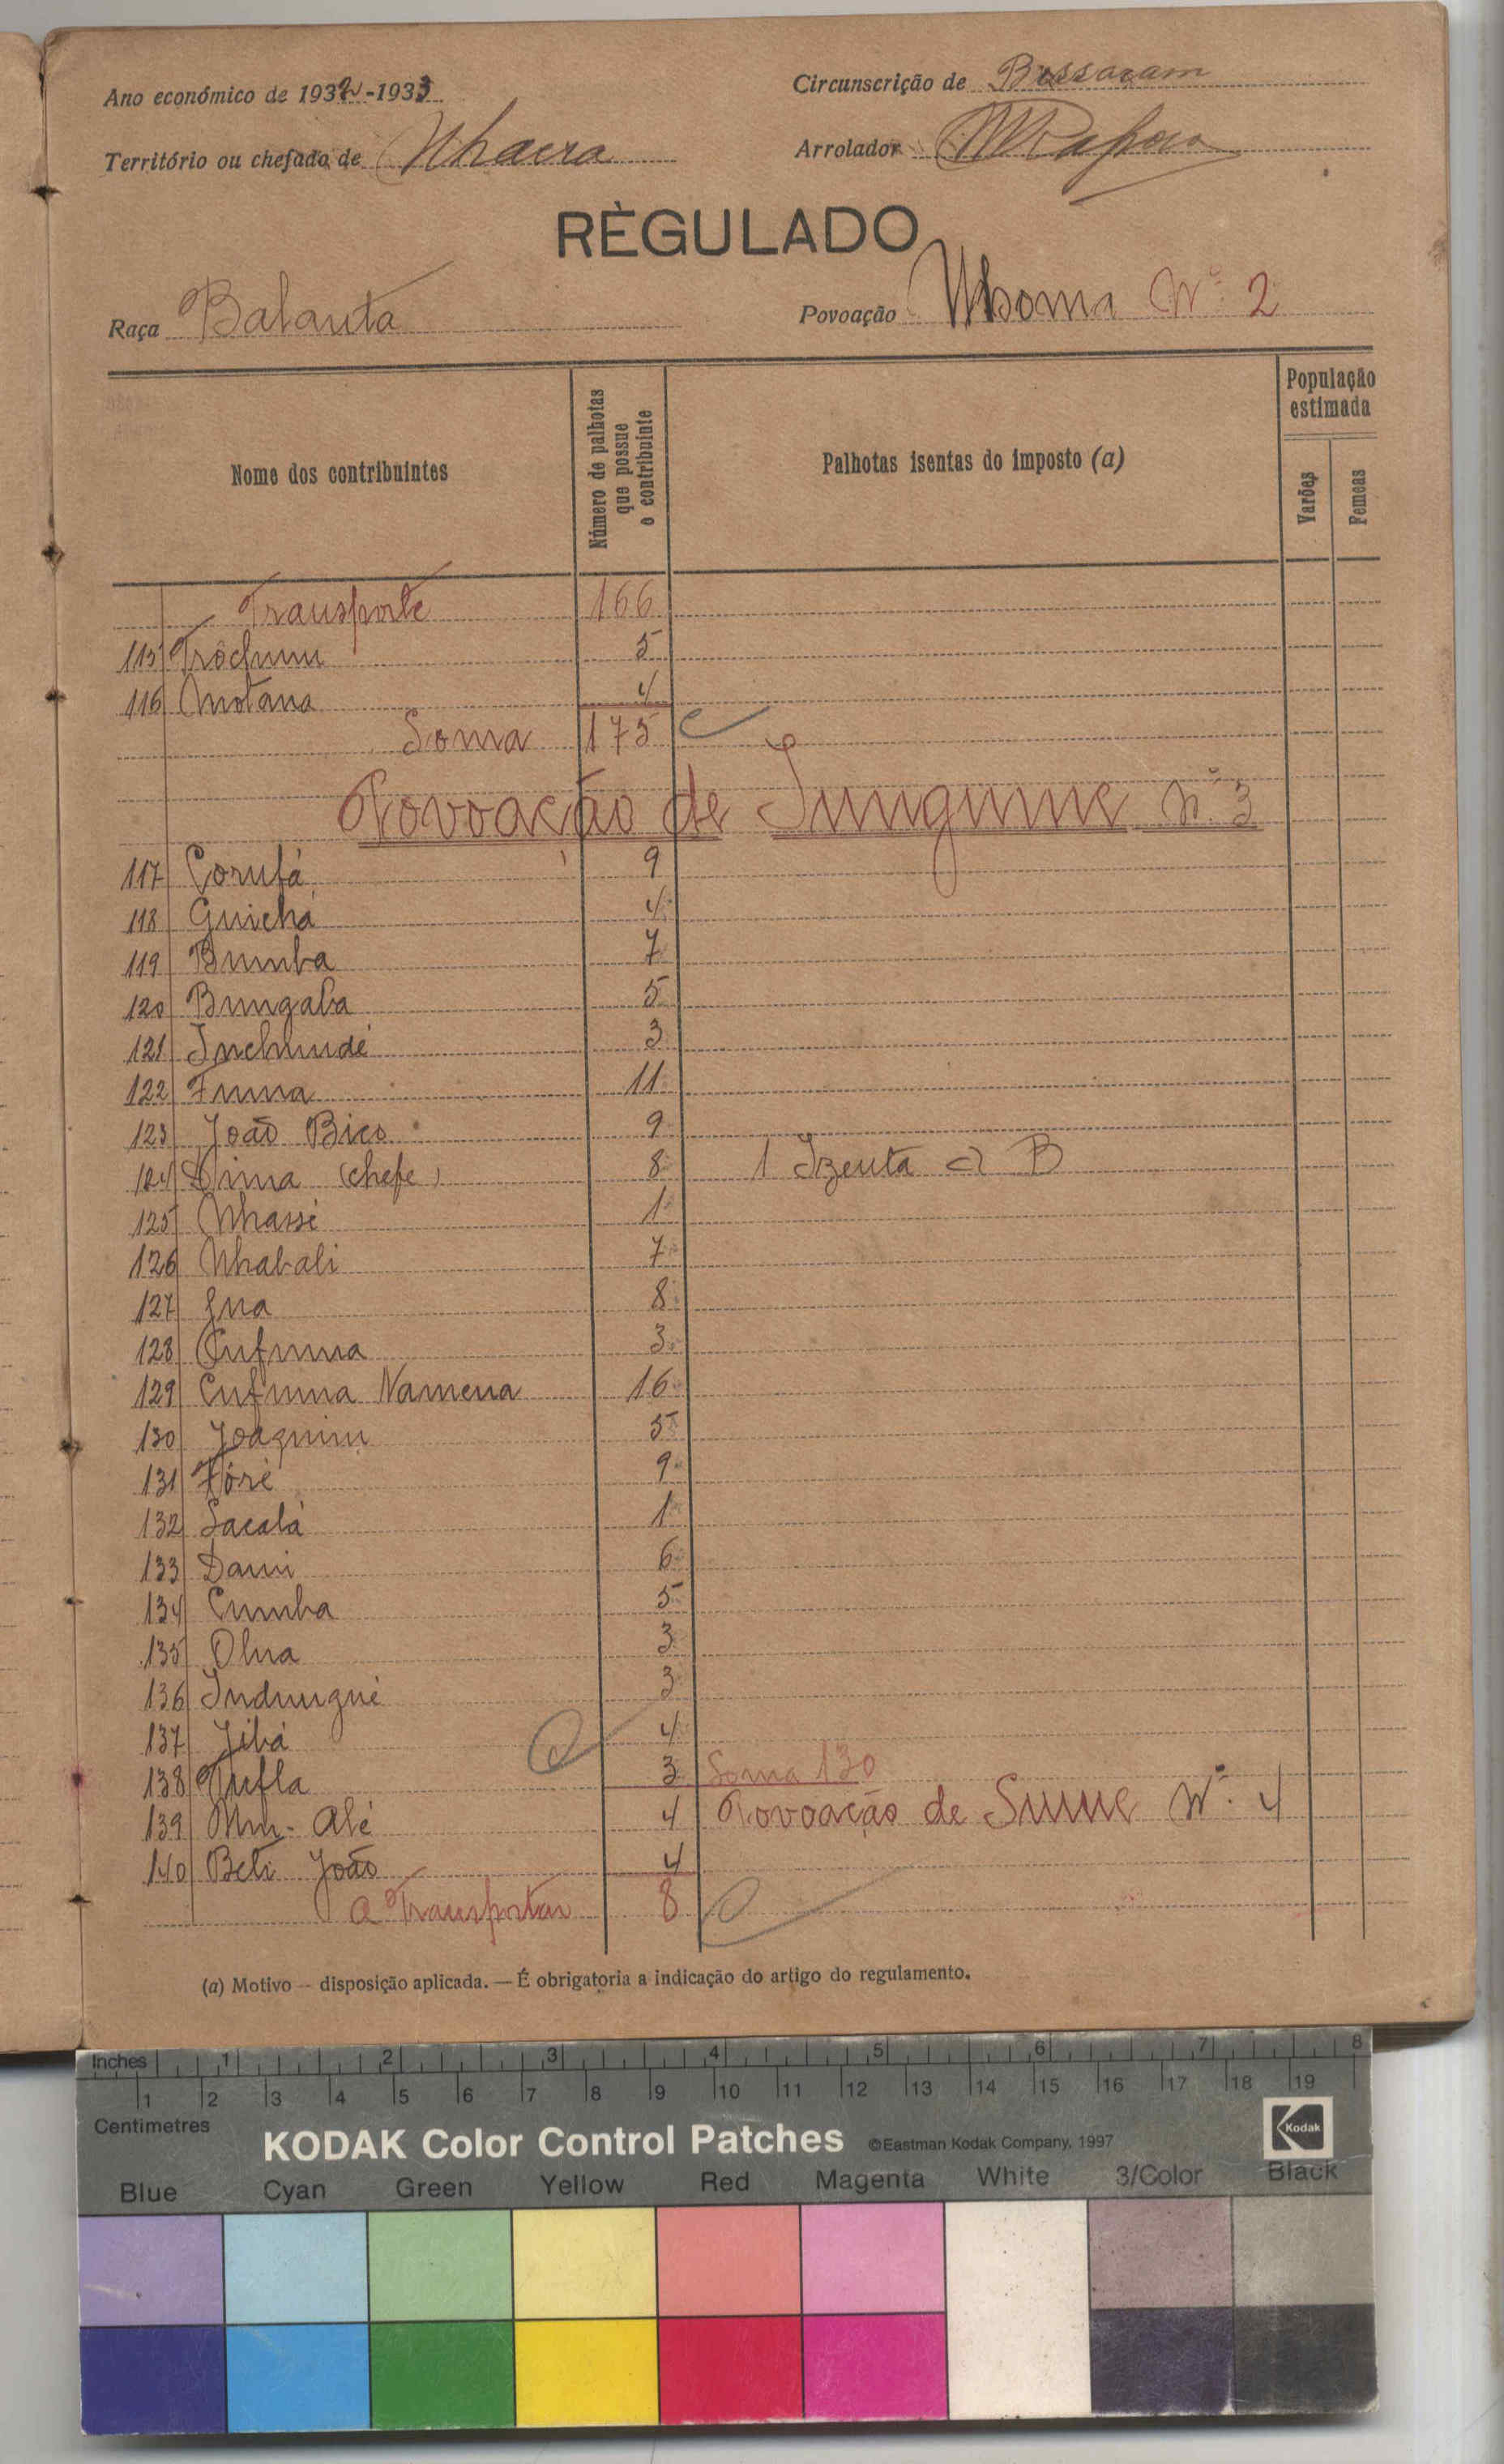 Ano económico de 1932-1933
Circunscrição de Bissaram
Território ou chefado de Nhacra
Arrolador
RÈGULADO
Raça Balanta
Povoação Nhoma Nº 2
Nome dos contribuintes
Número de palhotas que possue o contribuinte
Palhotas isentas do imposto (a)
População estimada
Varões
Femeas
Transporte 166
115 Trôchum 5
116 Motana 4
Soma 175
Povoação de Sungume Nº 3
117 Corufá 9
118 Guichá 4
119 Bumba 7
120 Bungaba 5
121 Inchudé 3
122 Fuma 11
123 João Bico 9
124 Dima (chefe) 8 1 Izenta a) B
125 Nhassé 1
126 Nhabali 7
127 8
128 Cufuma 3
129 Cufuma Namena 16
130 Joaquim 5
131 Fôré 9
132 Sacalá 1
133 Dami 6
134 Cumba 5
135 Olua 3
136 Indungué 3
137 Jibá 4
138 Tufla 3 Soma 130
139 Alé 4 Povoação de Sume Nº 4
140 Beti João 4
A Transportar 8
(a) Motivo — disposição aplicada. — É obrigatoria a indicação do artigo do regulamento.
Inches 1 2 3 4 5 6 7 8
1 2 3 4 5 6 7 8 9 10 11 12 13 14 15 16 17 18 19
Centimetres
KODAK Color Control Patches ©Eastman Kodak Company, 1997 Kodak
Blue Cyan Green Yellow Red Magenta White 3/Color Black